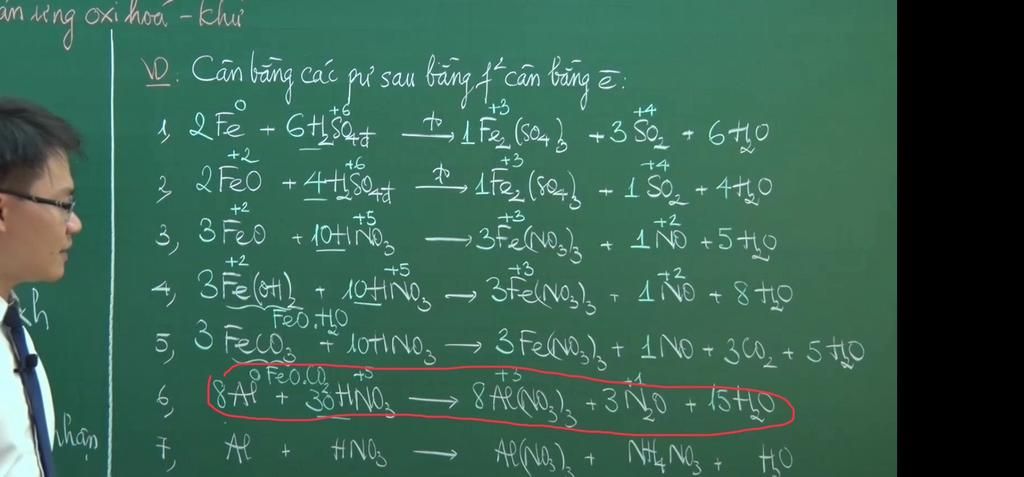 ản ứng oxi hoá - khử
VD. Cân bằng các pư sau bằng f² cân bằng ē:
0 +6 +3 +4
1, 2Fe + 6H₂SO₄đ —t°→ 1Fe₂(SO₄)₃ + 3SO₂ + 6H₂O
+2 +6 +3 +4
2, 2FeO + 4H₂SO₄đ —t°→ 1Fe₂(SO₄)₃ + 1SO₂ + 4H₂O
+2 +5 +3 +2
3, 3FeO + 10HNO₃ → 3Fe(NO₃)₃ + 1NO + 5H₂O
+2 +5 +3 +2
4, 3Fe(OH)₂ + 10HNO₃ → 3Fe(NO₃)₃ + 1NO + 8H₂O
FeO.H₂O
5, 3FeCO₃ + 10HNO₃ → 3Fe(NO₃)₃ + 1NO + 3CO₂ + 5H₂O
FeO.CO₂
0 +5 +3 +1
6, 8Al + 30HNO₃ → 8Al(NO₃)₃ + 3N₂O + 15H₂O
7, Al + HNO₃ → Al(NO₃)₃ + NH₄NO₃ + H₂O
nhận